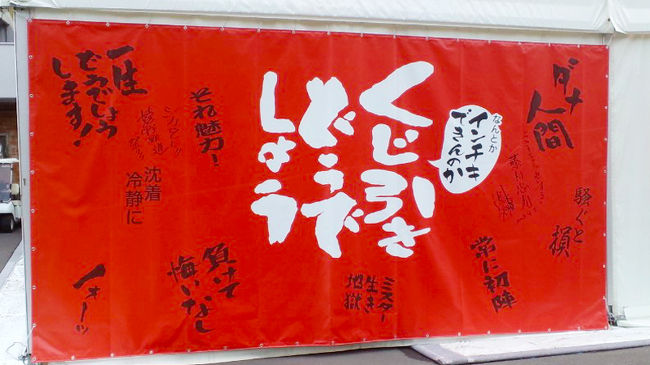 くじ引き
どうで
しょう
なんとか
インチキ
できんのか
ダメ
人間
騒ぐと
損
常に初陣
ミスター
生き
地獄
それ魅力!
沈着
冷静に
負けて
悔いなし
一生
どうでしょう
します!